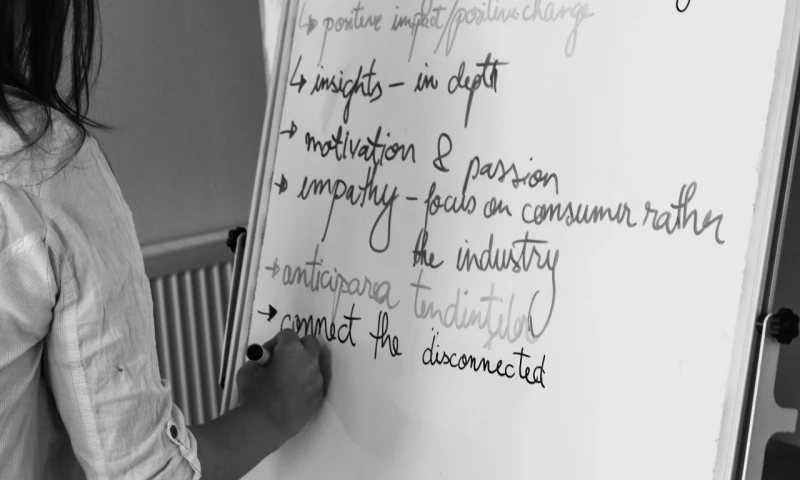 ↳ positive impact/positive change
↳ insights - in depth
→ motivation & passion
→ empathy - focus on consumer rather
the industry
→ anticiparea tendințelor
→ connect the disconnected